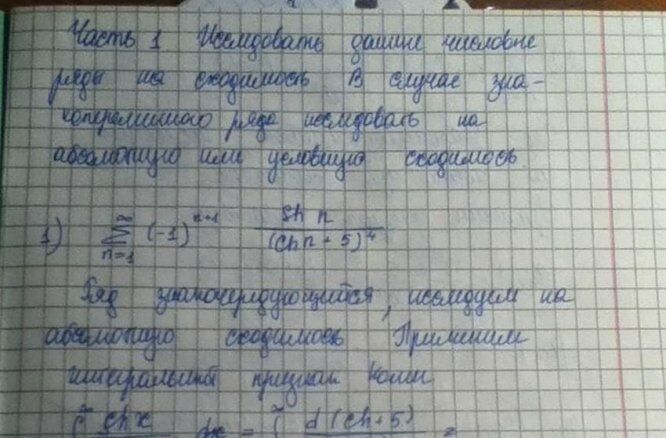 Часть 1 Исследовать данные числовые
ряды на сходимость В случае зна-
копеременного ряда исследовать на
абсолютную или условную сходимось
1) ∑ n=1 ∞ (-1)^{n+1} sh n / (ch n + 5)^4
Ряд знакочередующийся, исследуем на
абсолютную сходимось Применим
интегральный признак Коши
∫ ∞ shx dx = ∫ ∞ d(ch+5) =